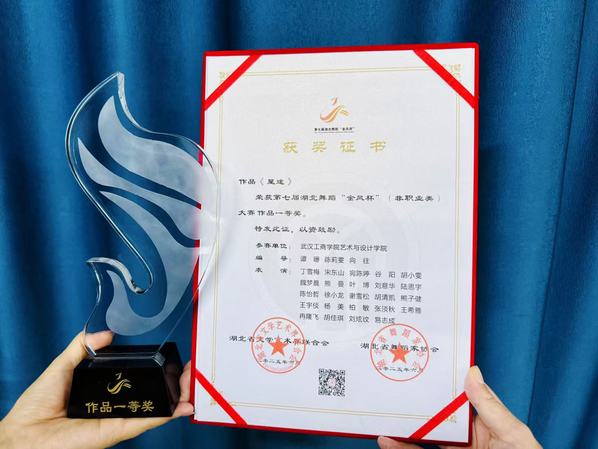 第七届湖北舞蹈“金凤杯”
获奖证书
作品《星途》
荣获第七届湖北舞蹈“金凤杯”（非职业类）
大赛作品一等奖。
特发此证，以资鼓励。
参赛单位： 武汉工商学院艺术与设计学院
编 导： 谭 珊 陈莉雯 向 往
表 演： 丁雪梅 宋东山 宛陈婷 谷 阳 胡小雯
魏梦晨 熊 蔓 叶 博 刘意华 陆思宇
陈怡哲 徐小龙 谢雪松 胡清凯 熊子健
王宇侠 杨 美 柏 敏 张淡秋 王希雅
冉隆飞 胡佳琪 刘炫汶 易志成
湖北省文学艺术界联合会
湖北省舞蹈家协会
二〇二五年六月
二〇二五年六月
作品一等奖